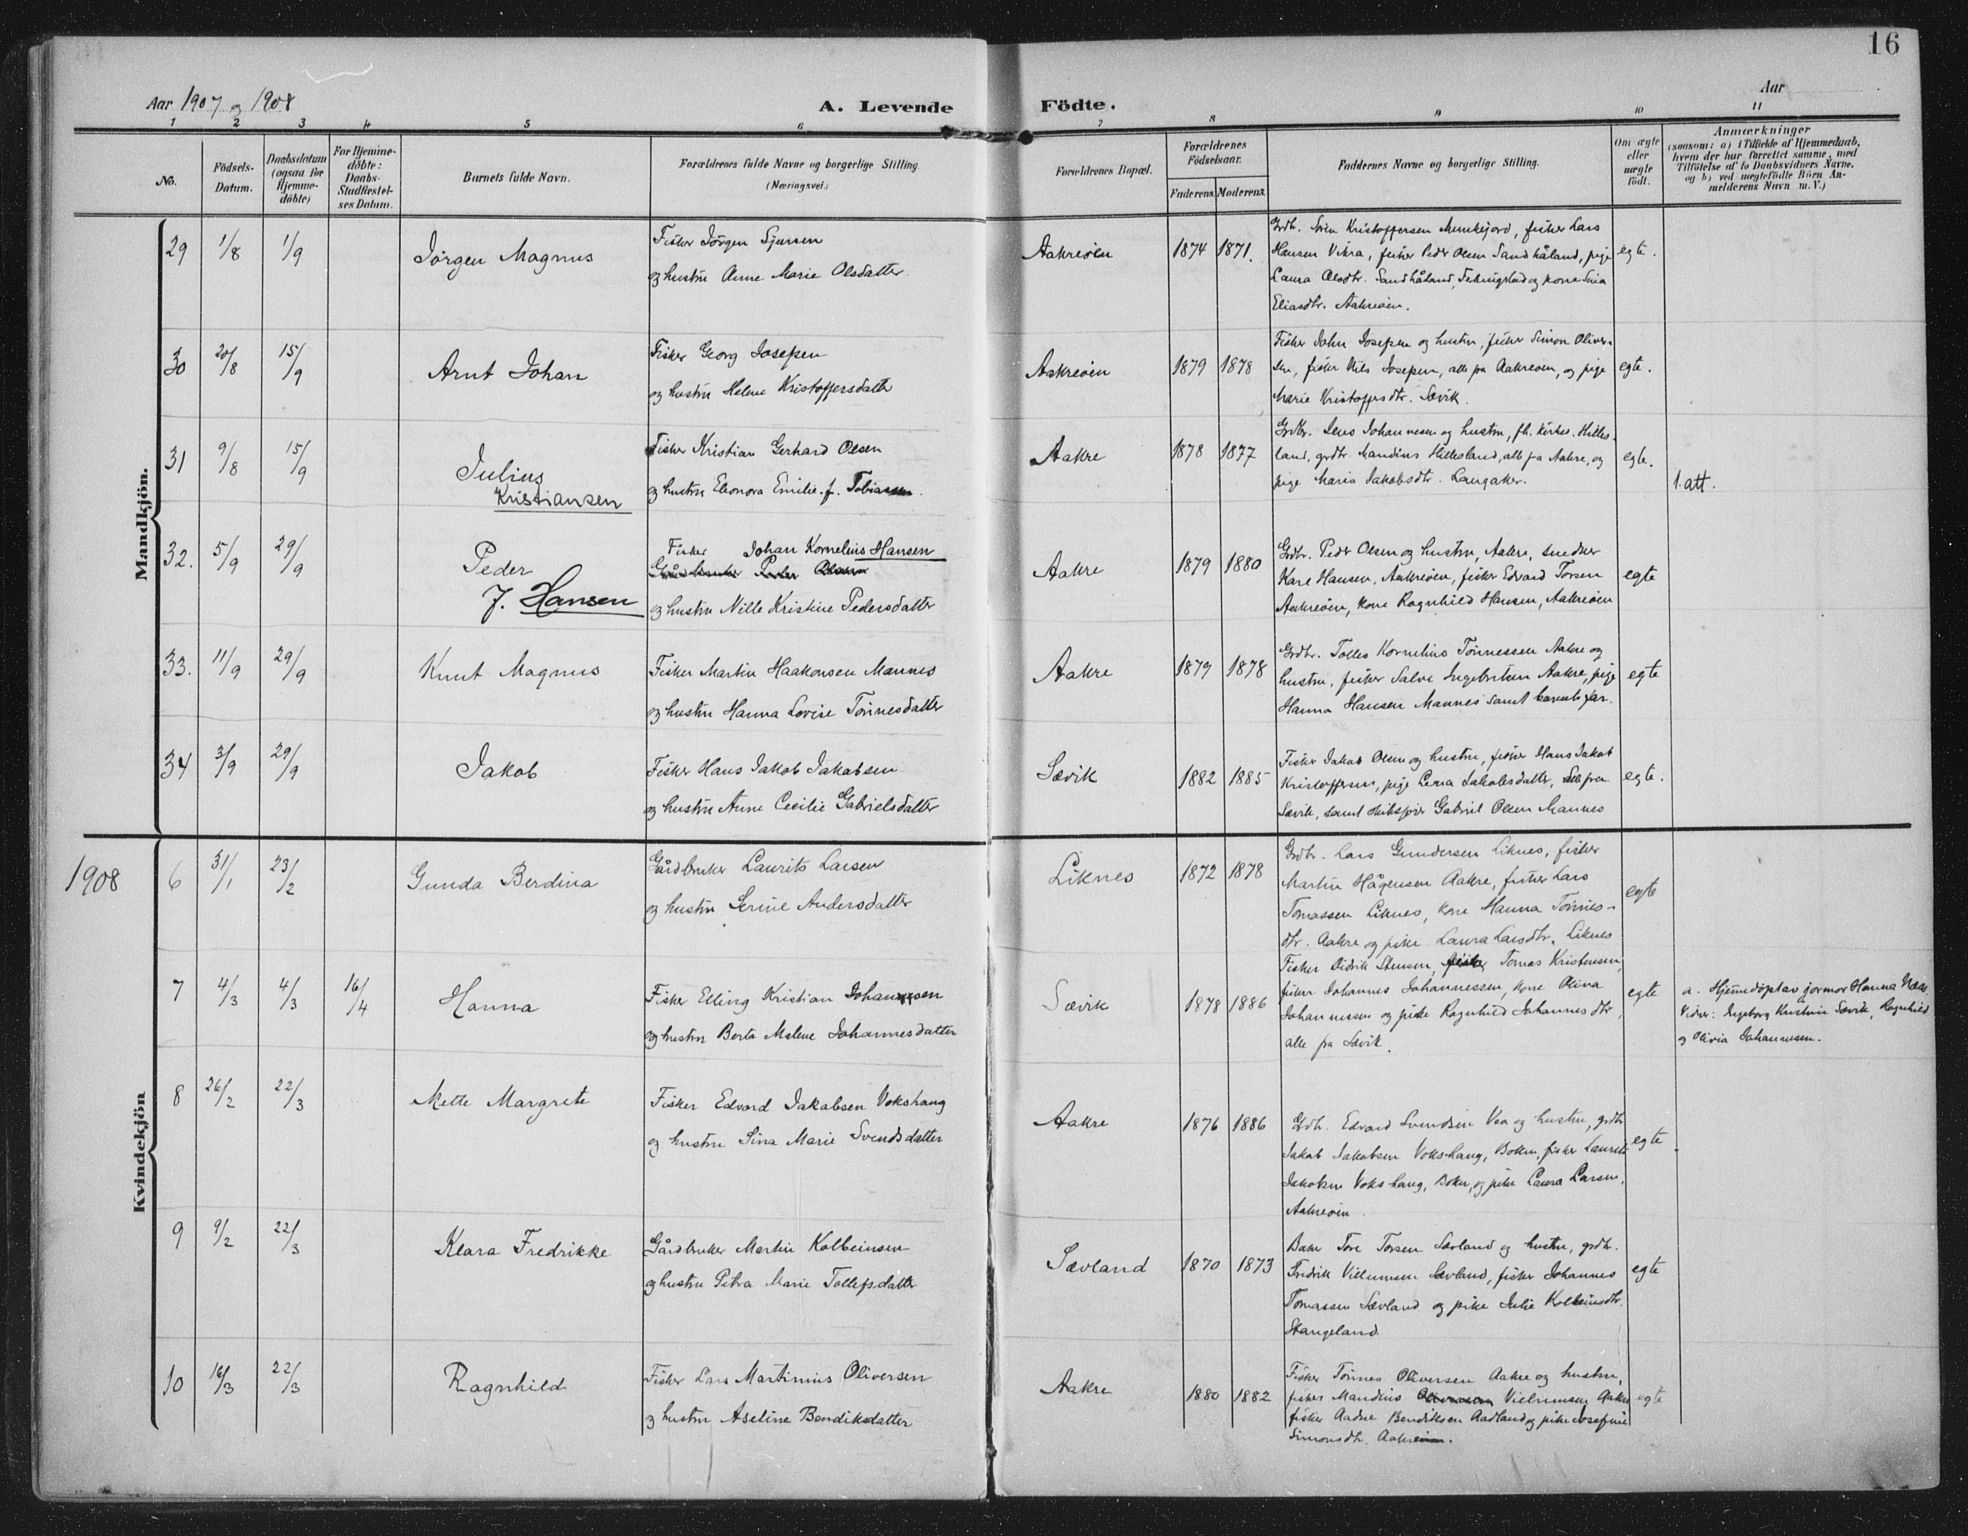 16
Aar 1907 og 1908
A. Levende Födte.
Aar
1 2 3 4 5 6 7 8 9 10 11
No.
Födsels-
Datum.
Daabsdatum
(ogsaa for
Hjemme-
döbte)
For Hjemme-
döbte:
Daabs-
Stadfæstel-
ses Datum.
Barnets fulde Navn.
Forældrenes fulde Navne og borgerlige Stilling.
(Næringsvei.)
Forældrenes Bopæl.
Forældrenes
Födselsaar.
Faderens. Moderens.
Faddernes Navne og borgerlige Stilling.
Om ægte
eller
uægte
födt.
Anmærkninger
(saasom: a) i Tilfælde af Hjemmedaab,
hvem der har forrettet samme, med
Tilföielse af to Daabsvidners Navne,
og b) ved uægtefödte Börn An-
melderens Navn m. V.)
Mandkjön.
29 1/8 1/9 Jørgen Magnus
Fisker Jørgen Sjursen
og hustru Anne Marie Olsdatter
Aakreøen 1874 1871.
Grdb. Sven Kristoffersen Munkejord, fisker Lars
Hansen Vikra, fisker Peder Olsen Sandhåland, pige
Laura Olsdtr. Sandhåland, Ferkingstad og kone Sina
Eliasdtr. Aakreøen.
egte.
30 20/8 15/9 Arnt Johan
Fisker Georg Josefsen
og hustru Helene Kristoffersdatter
Aakreøen 1879 1878
Fisker John Josefsen og hustru, fisker Simon Oliver-
sen, fisker Nils Josefsen, alle fra Aakreøen, og pige
Marie Kristoffersdtr. Sævik.
egte.
31 9/8 15/9 Julius
Kristiansen
Fisker Kristian Gerhard Olsen
og hustru Eleonora Emilie f. Tobiassen.
Aakre 1878 1877
Grdbr. Jens Johannesen og hustru, fh. kirkes. Hilles-
land, grdbr. Mandius Hillesland, alle fra Aakre, og
pige Maria Jakobsdtr. Langaker.
egte.
1. att.
32. 5/9 29/9 Peder
J. Hansen
Fisker Johan Kornelius Hansen
Gårdbruker Peder Olsen
og hustru Nille Kristine Pedersdatter
Aakre 1879 1880
Grdbr. Peder Olsen og hustru, Aakre, snedker
Kare Hansen, Aakreøen, fisker Edvard Torsen
Aakreøen, kone Ragnhild Hansen, Aakreøen
egte
33. 11/9 29/9 Knut Magnus
Fisker Martin Haakonsen Mannes
og hustru Hanna Lovise Tønnesdatter
Aakre 1879 1878
Grdbr. Tolles Kornelius Tønnessen Aakre og
hustru, fisker Salve Ingebretsen Aakre, pige
Hanna Hansen Mannes samt barnets far.
egte
34 3/9 29/9 Jakob
Fisker Hans Jakob Jakobsen
og hustru Anne Cecilie Gabrielsdatter
Sævik 1882 1885
Fisker Jakob Olsen og hustru, fisker Hans Jakob
Kristoffersen, pige Lena Jakobsdatter, alle fra
Sævik, samt Gabriel Olsen Mannes
egte.
1908
Kvindekjön
6 31/1 23/2 Gunda Berdina
Gårdbruker Laurits Larsen
og hustru Serine Andersdatter
Liknes 1872 1878
Grdb. Lars Gundersen Liknes, fisker
Martin Hågensen Aakre, fisker Lars
Tomassen Liknes, kone Hanna Tønnes-
dtr. Aakre og pike Laura Larsdtr. Liknes
egte
7 4/3 4/3 16/4 Hanna
Fisker Elling Kristian Johannesen
og hustru Berta Malene Johannesdatter
Sævik 1878 1886
Fisker Didrik Stensen, fisker Tomas Kristensen,
fisker Johannes Johannessen, kone Oliva
Johannessen og pike Ragnhild Johannesdtr,
alle fra Sævik.
egte
a. Hjemmedøpt av jormor Hanna Næss
Vidner: Ingeborg Kristine Sævik, Ragnhild
og Olivia Johannesen.
8 26/2 22/3 Mette Margrete
Fisker Edvard Jakobsen Vokshaug
og hustru Sina Marie Svendsdatter
Aakre 1876 1886
Grdb. Edvard Svendsen Vea og hustru, grdbr
Jakob Jakobsen Vokshaug, Bokn, fisker Laurits
Jakobsen Vokshaug, Bokn, og pike Laura Larsen,
Aakreøen
egte
9 9/2 22/3 Klara Fredrikke
Gårdbruker Martin Kolbeinsen
og hustru Petra Marie Tollefsdatter
Sævland 1870 1873
Baker Tore Torsen Sævland og hustru, grdb.
Fredrik Vielumsen Sævland, fisker Johannes
Tomassen Sævland og pike Julie Kolbeinsdtr.
Stangeland
egte
10 16/3 22/3 Ragnhild
Fisker Lars Martinius Oliversen
og hustru Aseline Bendiksdatter
Aakre 1880 1882
Fisker Tønnes Oliversen Aakre og hustru,
fisker Mandius Vielumsen Aakre
fisker Aadne Bendiksen Aadland og pike Josefine
Simonsdtr. Aakreøen.
egte